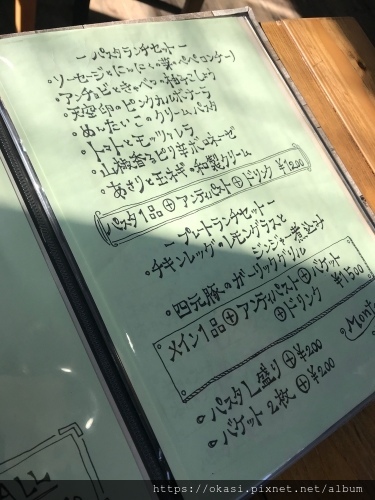 ーパスタランチセットー
・ソーセージとにんにくの芽のペペロンチーノ
・アンチョビとキャベツの柚子こしょう
・天空卵のピンクカルボナーラ
・めんたいこのクリームパスタ
・トマトとモッツァレラ
・山椒香るピリ辛ボロネーゼ
・あさりと玉ねぎの和製クリーム
パスタ1品⊕アンティパスト⊕ドリンク ¥1200
ープレートランチセットー
・チキンレッグのレモングラスと
ジンジャー煮込み
・四元豚のガーリックグリル
メイン1品⊕アンティパスト⊕バケット
⊕ドリンク ¥1500
パスタL盛り⊕¥200
バケット2枚⊕¥200
ALL
https://okasi.pixnet.net/album